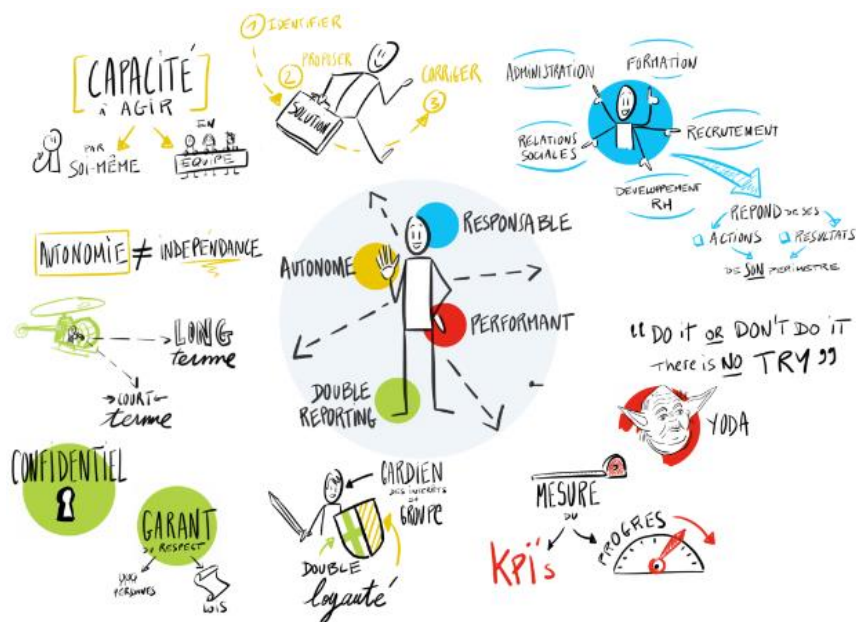 CAPACITÉ
à AGIR
PAR
SOI-MÊME
EN
ÉQUIPE
1 IDENTIFIER
2 PROPOSER
SOLUTION
CORRIGER
3
ADMINISTRATION
FORMATION
RELATIONS
SOCIALES
RECRUTEMENT
DEVELOPPEMENT
RH
RÉPOND DE SES
ACTIONS
RÉSULTATS
DE SON PÉRIMÈTRE
AUTONOMIE ≠ INDÉPENDANCE
LONG
terme
COURT
terme
RESPONSABLE
AUTONOME
PERFORMANT
DOUBLE
REPORTING
“DO iT OR DON'T DO iT
There is NO TRY”
YODA
CONFIDENTIEL
GARANT
DU RESPECT
DES
PERSONNES
LOIS
GARDIEN
DES INTÉRÊTS
DU
GROUPE
DOUBLE
loyauté
MESURE
DU
KPï's
PROGRES